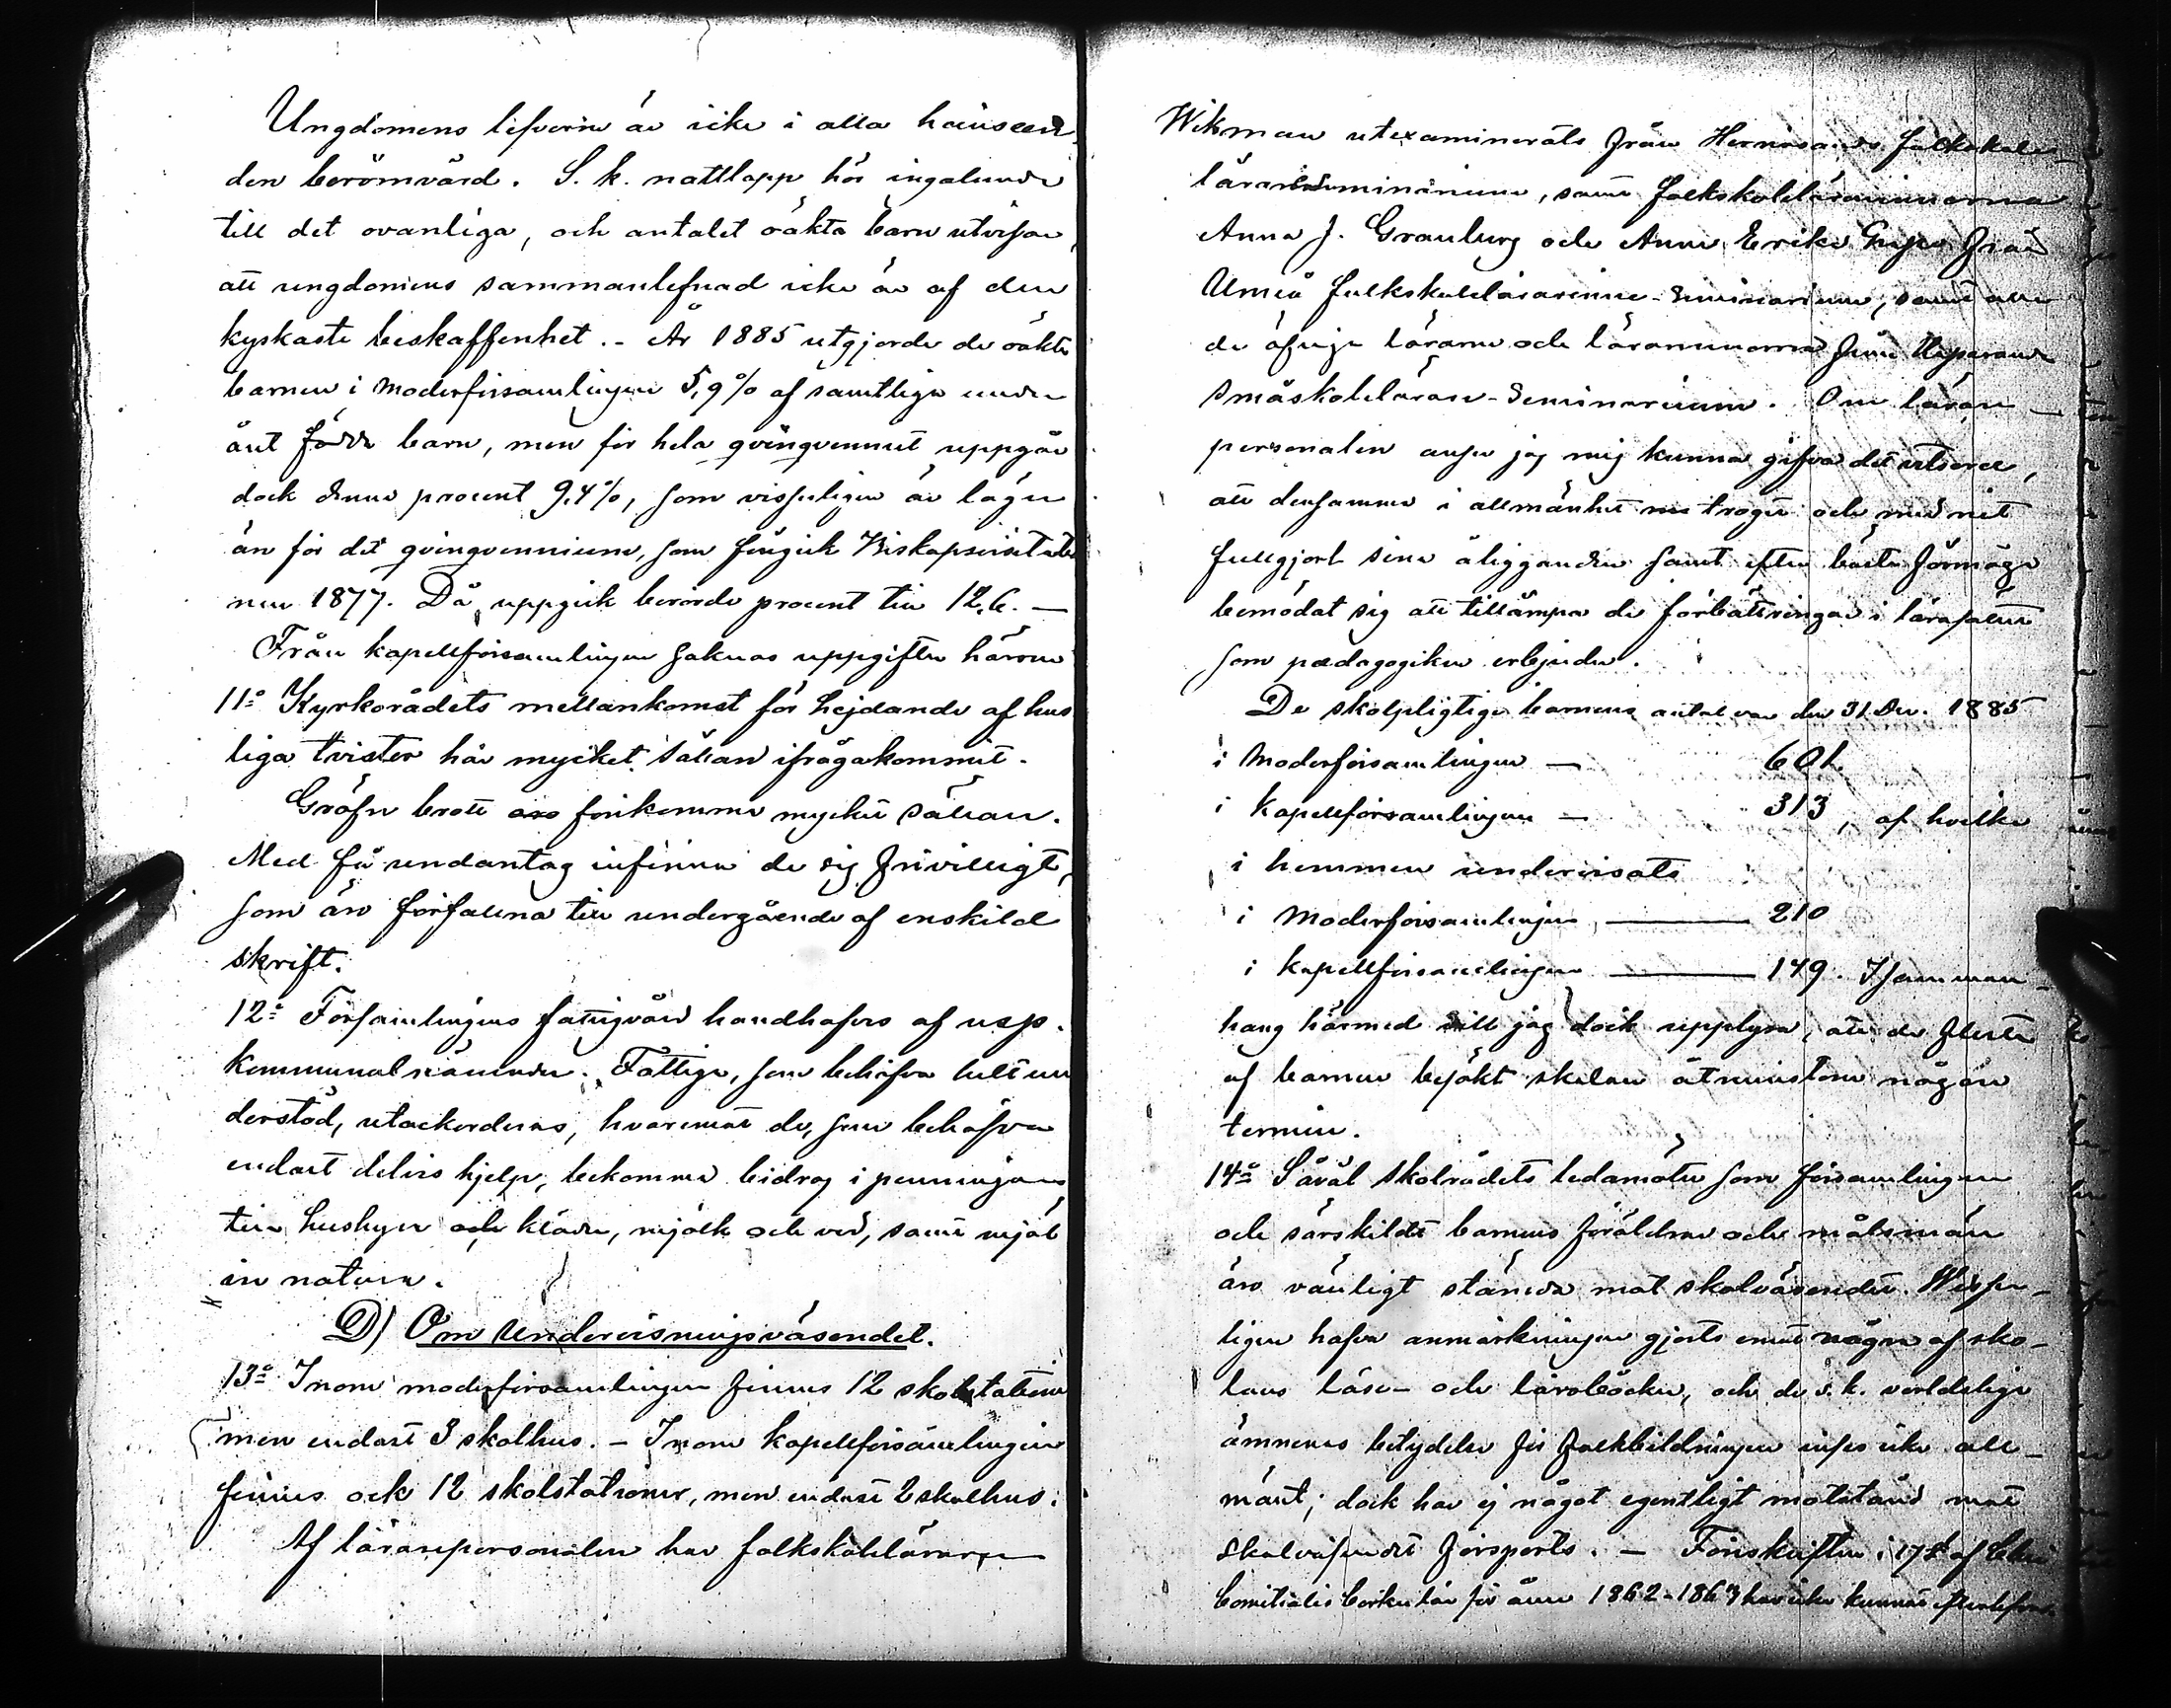 Ungdomens lefverne är icke i alla hänseen-
den berömvärd. S. k. nattlopp hör ingalunda
till det ovanliga, och antalet oäkta barn utvisar,
att ungdomens sammanlefnad icke är af den
kyskaste beskaffenhet. - År 1885 utgjorde de oäkta
barnen i moderförsamlingen 5,9% af samtliga under
året födda barn, men för hela qvinqvenniet uppgår
dock denna procent 9,4%, som visserligen är lägre
än för det qvinqvennium, som föregick Biskopsvisitatio
nen 1877. Då uppgick berörde procent till 12,6. —
Från kapellförsamlingen saknas uppgifter härom
11:o Kyrkorådets mellankomst för hejdande af hus
liga tvister har mycket sällan ifrågakommit.
Gröfre brott förekomma mycket sällan.
Med få undantag infinna de sig frivilligt,
som äro förfallna till undergående af enskild
skrift.
12:o Församlingens fattigvård handhafves af resp.
kommunalnämnder. Fattige, som behöfva helt un
derstöd, utackorderas, hvaremot de, som behöfva
endast delvis hjelp, bekomma bidrag i penningar
till hushyra och kläder, mjölk och ved, samt mjöl
in natura.
D) Om Undervisningsväsendet.
13:o Inom moderförsamlingen finnas 12 skolstationer
men endast 3 skolhus. - Inom kapellförsamlingen
finnas ock 12 skolstationer, men endast 2 skolhus.
Af lärarepersonalen har folkskolläraren
Wikman utexaminerats från Hernösands folkskole-
lärareseminarium, samt folkskollärarinnorna
Anna J. Granberg och Anna Erika från
Umeå folkskollärarinne-Seminarium, samt alla
de öfrige lärarne och lärarinnorna från Haparanda
småskollärare-Seminarium. Om lärare-
personalen anser jag mig kunna gifva det vitsord,
att densamma i allmänhet troget och med nit
fullgjort sina åligganden samt efter bästa förmåga
bemödat sig att tillämpa de förbättringar i lärosätt
som pædagogiken erbjuder.
De skolpligtiga barnens antal var den 31 Dec. 1885
i Moderförsamlingen — 601
i Kapellförsamlingen — 313, af hvilka
i hemmen undervisats
i Moderförsamlingen, — 210
i kapellförsamlingen — 149. I samman-
hang härmed vill jag dock upplysa, att de flesta
af barnen besökt skolan åtminstone någon
termin.
14:o Såväl skolrådets ledamöter som församlingen
och särskildt barnens föräldrar och målsmän
äro vänligt stämda mot skolväsendet. Visser-
ligen hafva anmärkningar gjorts emot några af sko-
lans läse- och läroböcker, och de s. k. verldsliga
ämnenas betydelse för folkbildningen inses icke all-
mänt; dock har ej något egentligt motstånd mot
skolväsendet försports. - Föreskriften i 17 § af
Comitialis Cirkulär för åren 1862-1863 har icke kunnat efterlefvas.